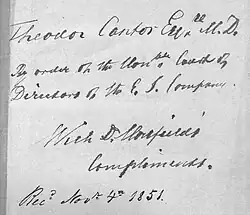 Theodor Cantor Esqre. M.D.
By order of the Honble Court of
Directors of the E. I. Company.
With D. Horsfield's
Compliments.
Recd. Novr. 4th 1851.